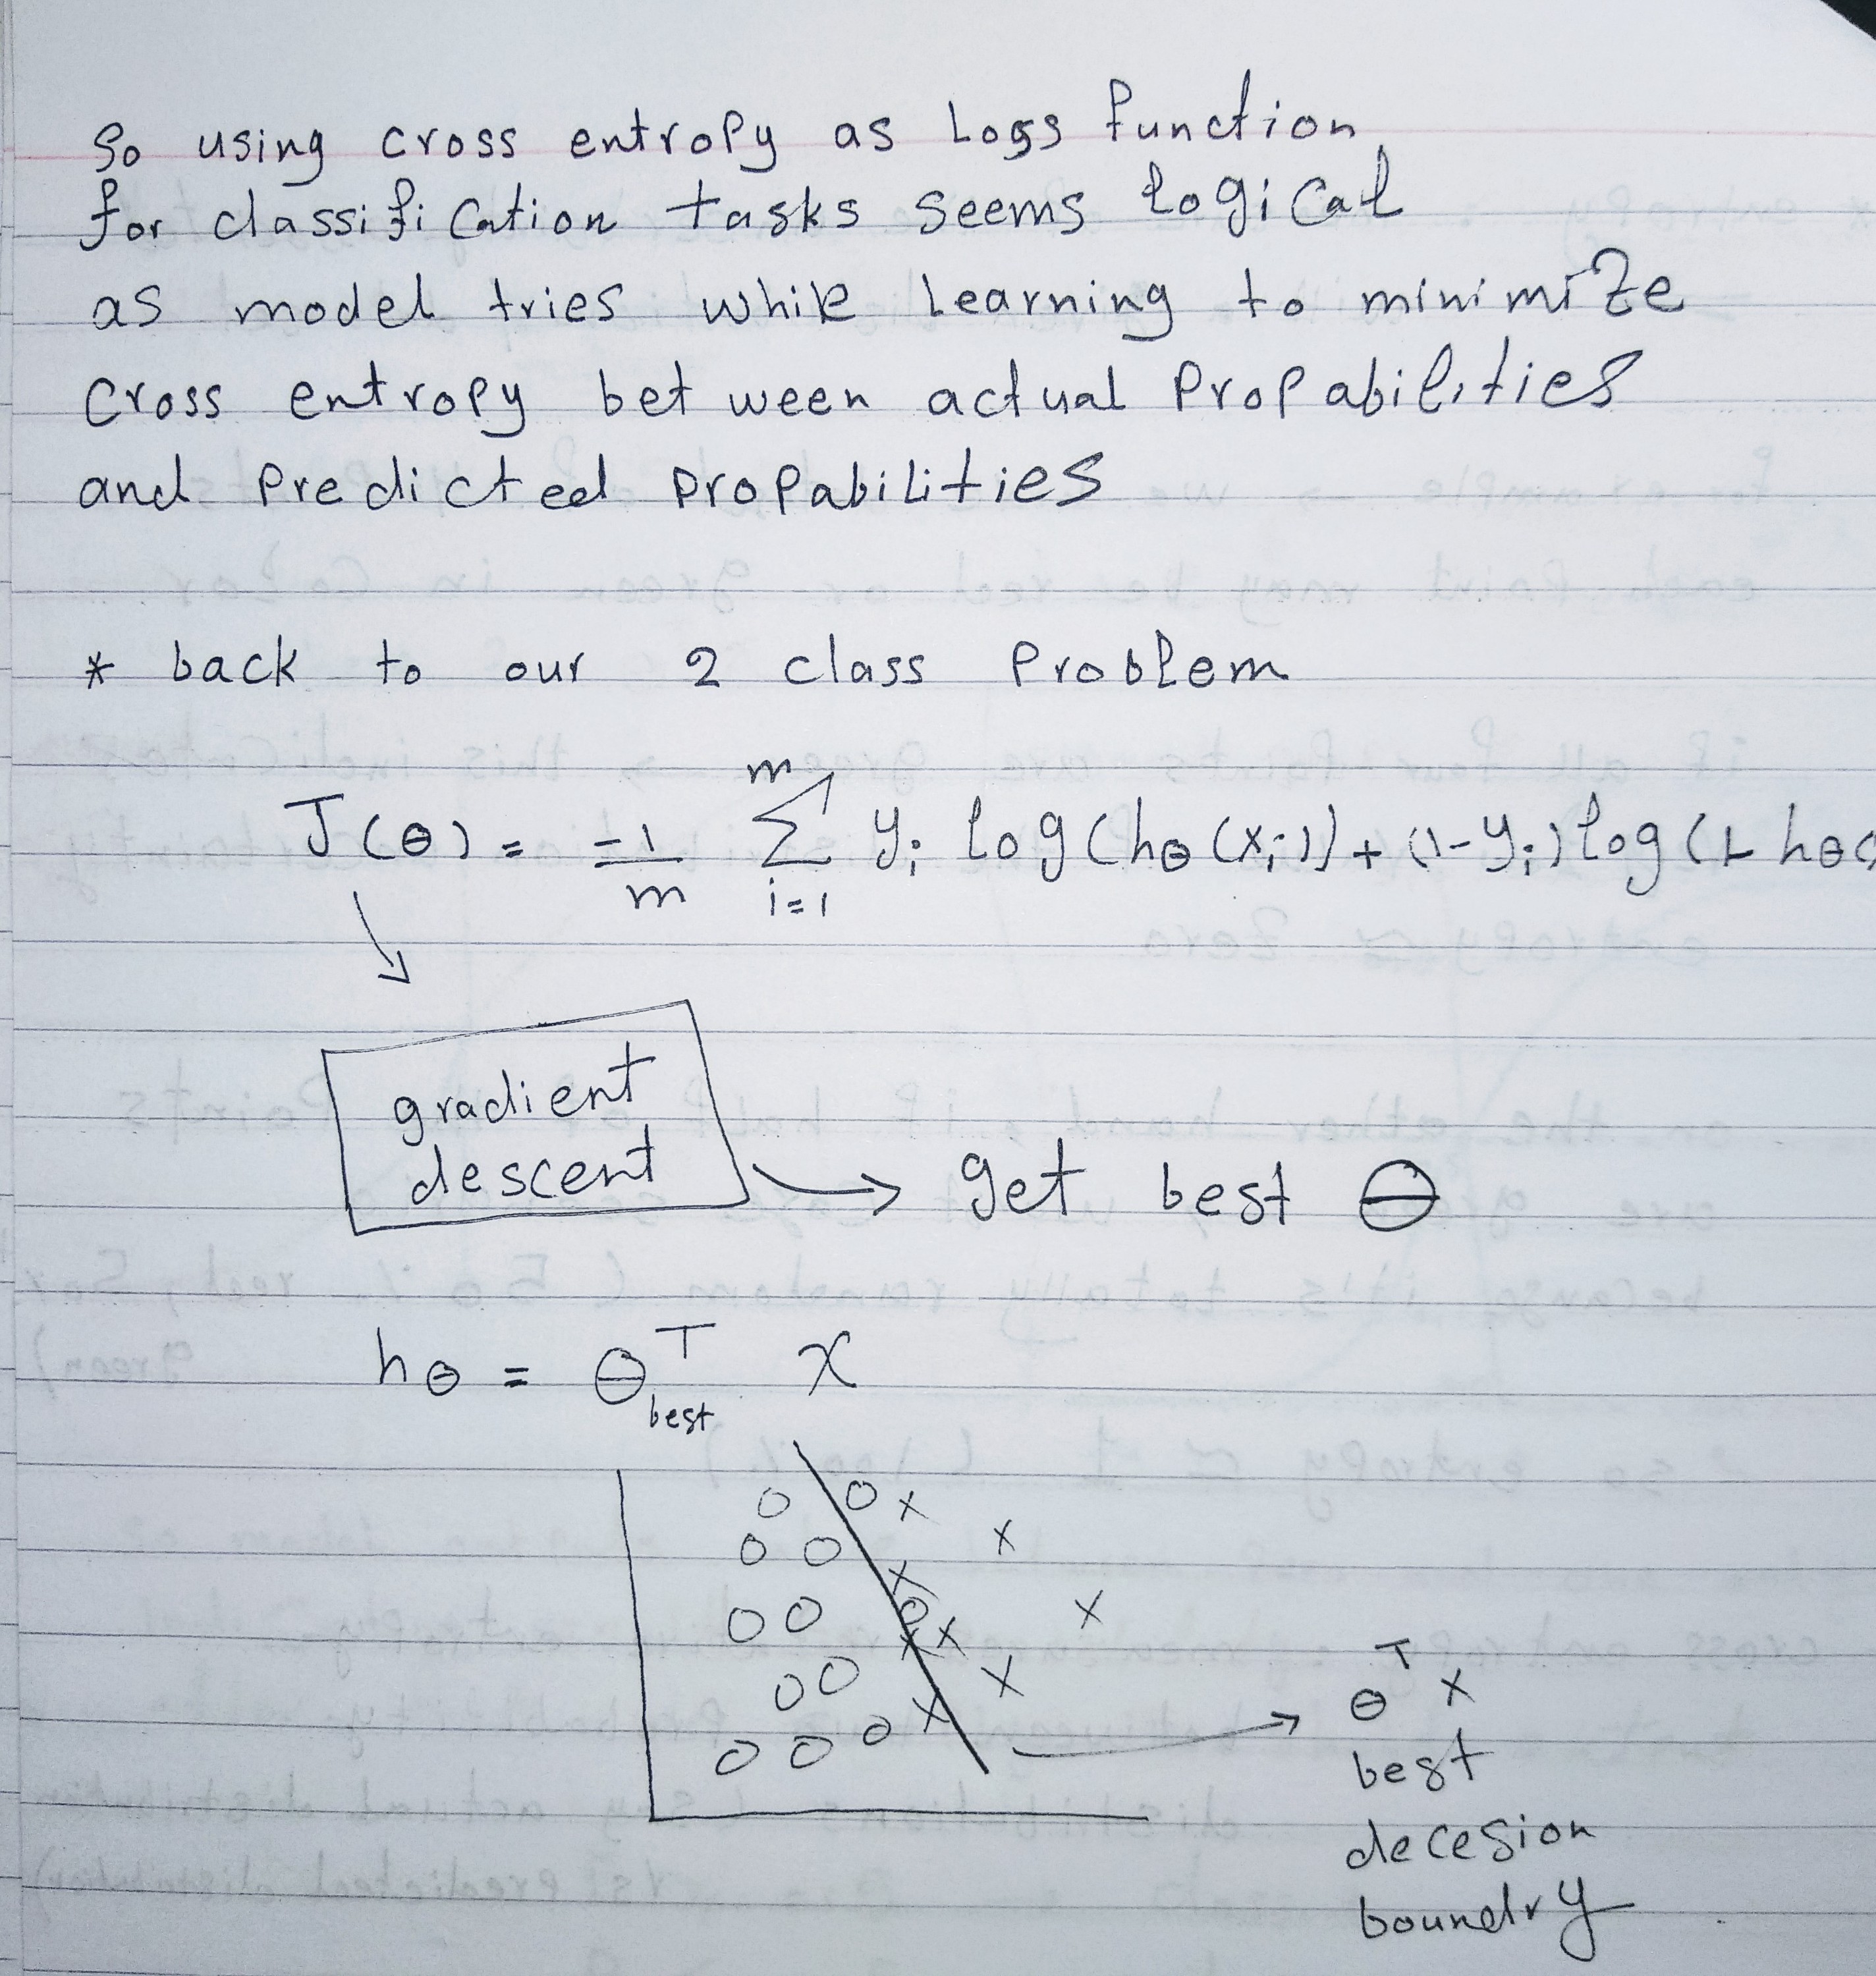 So using cross entropy as Loss function
for classification tasks seems logical
as model tries while learning to minimize
cross entropy between actual propabilities
and predicted propabilities
* back to our 2 class problem
J(θ) = -1/m Σ_{i=1}^{m} y_i log(h_θ(x_i)) + (1-y_i) log(1-h_θ(
gradient
descent
→ get best θ
h_θ = θ^T_best x
θ^T x
best
decesion
boundry